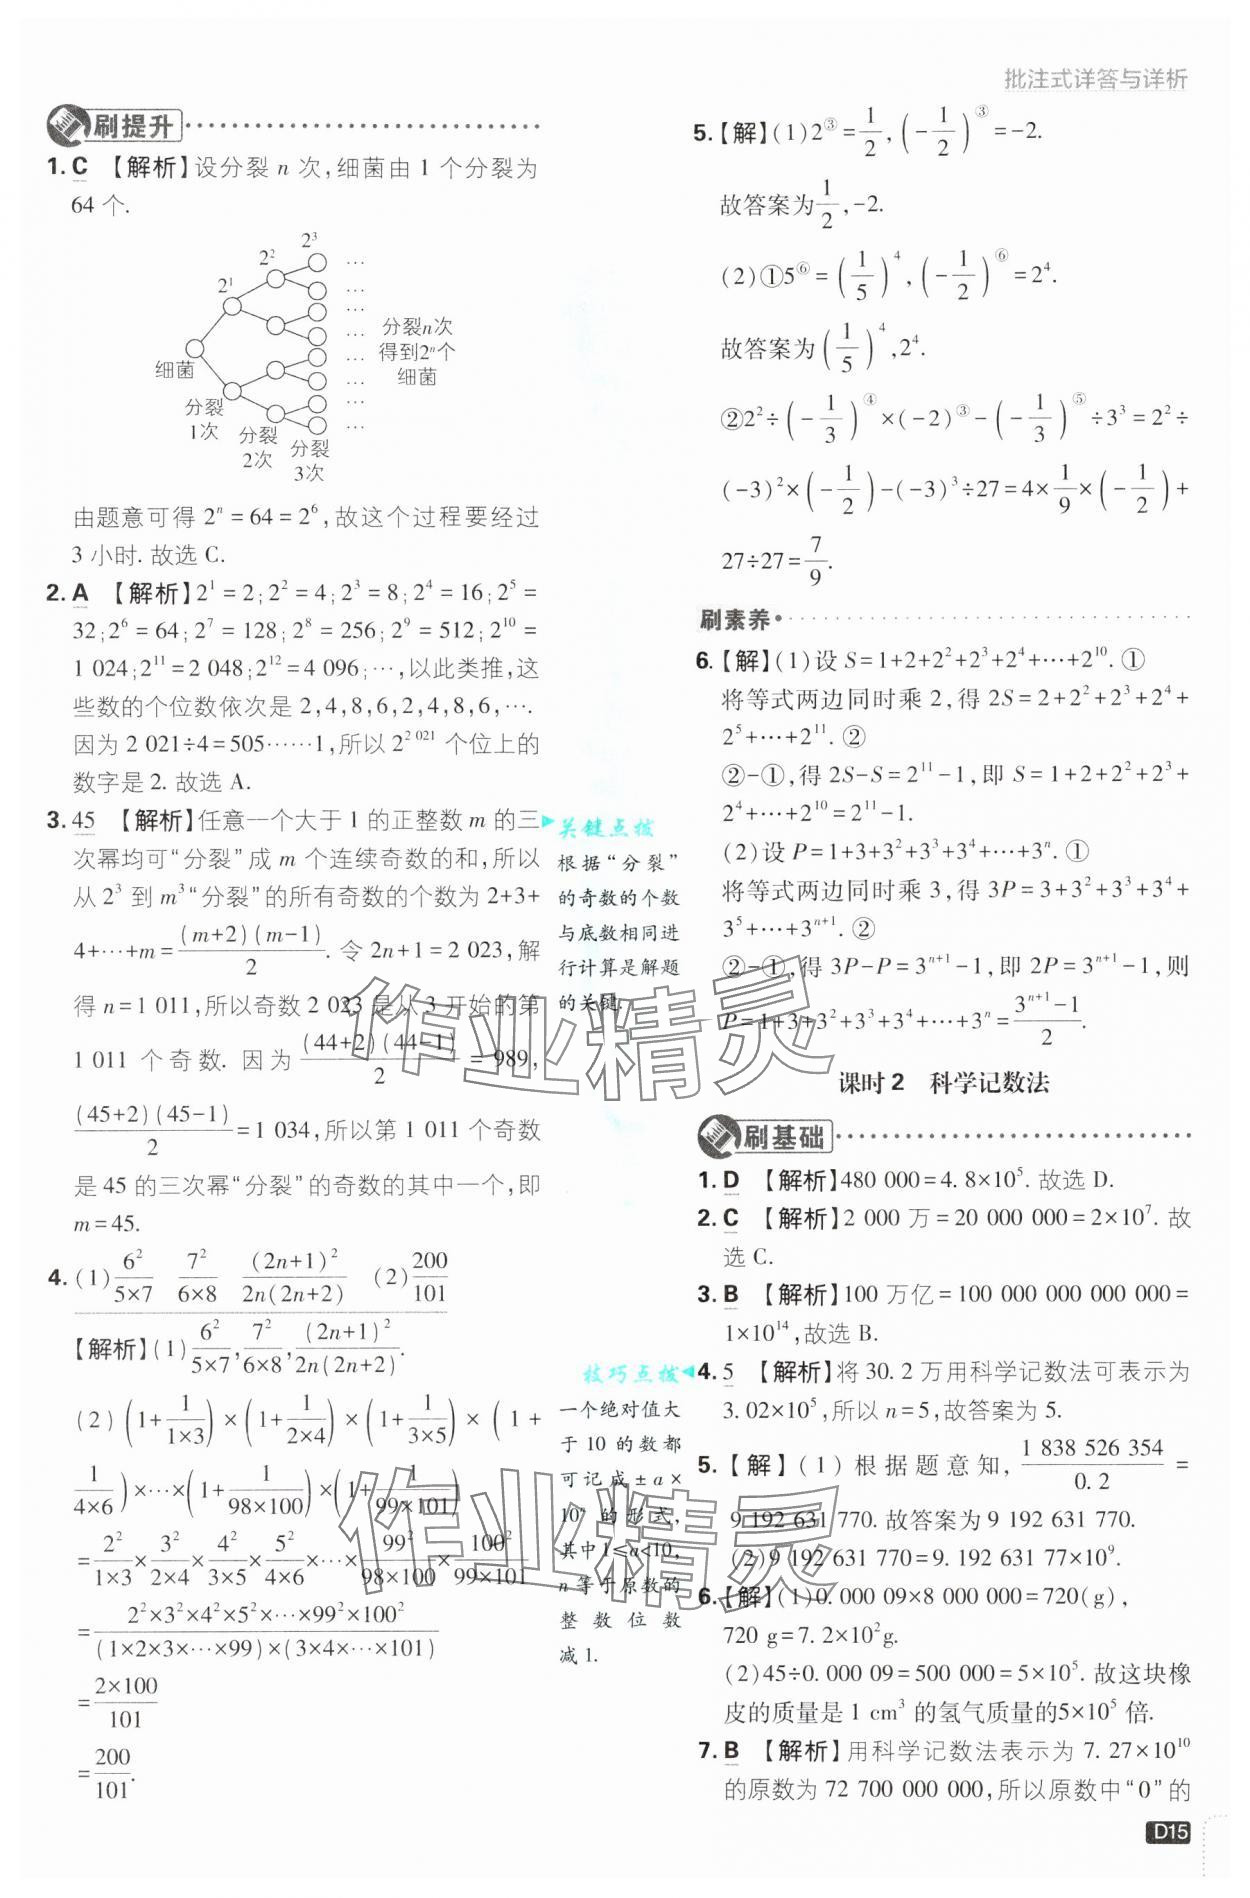 批注式详答与详析
刷提升
1. C 【解析】设分裂 n 次,细菌由 1 个分裂为
64 个.
2³
2²
2¹
细菌
分裂
1次
分裂
2次
分裂
3次
… … … … … … … …
分裂n次
得到2ⁿ个
细菌
由题意可得 2ⁿ=64=2⁶,故这个过程要经过
3 小时. 故选 C.
2. A 【解析】2¹=2;2²=4;2³=8;2⁴=16;2⁵=
32;2⁶=64;2⁷=128;2⁸=256;2⁹=512;2¹⁰=
1 024;2¹¹=2 048;2¹²=4 096;…,以此类推,这
些数的个位数依次是 2,4,8,6,2,4,8,6,….
因为 2 021÷4=505……1,所以 2²⁰²¹ 个位上的
数字是 2. 故选 A.
3. 45 【解析】任意一个大于 1 的正整数 m 的三
次幂均可“分裂”成 m 个连续奇数的和,所以
从 2³ 到 m³“分裂”的所有奇数的个数为 2+3+
4+…+m=(m+2)(m-1)/2. 令 2n+1=2 023,解
得 n=1 011,所以奇数 2 023 是从 3 开始的第
1 011 个奇数. 因为 (44+2)(44-1)/2 = 989,
(45+2)(45-1)/2=1 034,所以第 1 011 个奇数
是 45 的三次幂“分裂”的奇数的其中一个,即
m=45.
4. (1) 6²/(5×7) 7²/(6×8) (2n+1)²/(2n(2n+2)) (2) 200/101
【解析】(1) 6²/(5×7), 7²/(6×8), (2n+1)²/(2n(2n+2)).
(2) (1+1/(1×3))×(1+1/(2×4))×(1+1/(3×5))×(1+
1/(4×6))×…×(1+1/(98×100))×(1+1/(99×101))
=2²/(1×3)×3²/(2×4)×4²/(3×5)×5²/(4×6)×…×99²/(98×100)×100²/(99×101)
=(2²×3²×4²×5²×…×99²×100²)/((1×2×3×…×99)×(3×4×…×101))
=(2×100)/101
=200/101.
关键点拨
根据“分裂”
的奇数的个数
与底数相同进
行计算是解题
的关键.
技巧点拨
一个绝对值大
于 10 的数都
可记成 ±a×
10ⁿ 的形式,
其中 1≤a<10,
n 等于原数的
整数位数
减 1.
5. 【解】(1)2^③=1/2,(-1/2)^③=-2.
故答案为1/2,-2.
(2)①5^⑥=(1/5)⁴,(-1/2)^⑥=2⁴.
故答案为(1/5)⁴,2⁴.
②2²÷(-1/3)^④×(-2)^③-(-1/3)^⑤÷3³=2²÷
(-3)²×(-1/2)-(-3)³÷27=4×1/9×(-1/2)+
27÷27=7/9.
刷素养
6. 【解】(1)设 S=1+2+2²+2³+2⁴+…+2¹⁰. ①
将等式两边同时乘 2,得 2S=2+2²+2³+2⁴+
2⁵+…+2¹¹. ②
②-①,得 2S-S=2¹¹-1,即 S=1+2+2²+2³+
2⁴+…+2¹⁰=2¹¹-1.
(2)设 P=1+3+3²+3³+3⁴+…+3ⁿ. ①
将等式两边同时乘 3,得 3P=3+3²+3³+3⁴+
3⁵+…+3ⁿ⁺¹. ②
②-①,得 3P-P=3ⁿ⁺¹-1,即 2P=3ⁿ⁺¹-1,则
P=1+3+3²+3³+3⁴+…+3ⁿ=(3ⁿ⁺¹-1)/2.
课时 2 科学记数法
刷基础
1. D 【解析】480 000=4. 8×10⁵. 故选 D.
2. C 【解析】2 000 万=20 000 000=2×10⁷. 故
选 C.
3. B 【解析】100 万亿=100 000 000 000 000=
1×10¹⁴,故选 B.
4. 5 【解析】将 30. 2 万用科学记数法可表示为
3. 02×10⁵,所以 n=5,故答案为 5.
5. 【解】(1)根据题意知,1 838 526 354/0. 2=
9 192 631 770. 故答案为 9 192 631 770.
(2)9 192 631 770=9. 192 631 770×10⁹.
6. 【解】(1)0. 000 09×8 000 000=720(g),
720 g=7. 2×10²g.
(2)45÷0. 000 09=500 000=5×10⁵. 故这块橡
皮的质量是 1 cm³ 的氢气质量的5×10⁵ 倍.
7. B 【解析】用科学记数法表示为 7. 27×10¹⁰
的原数为 72 700 000 000,所以原数中“0”的
D15
作业精灵
作业精灵